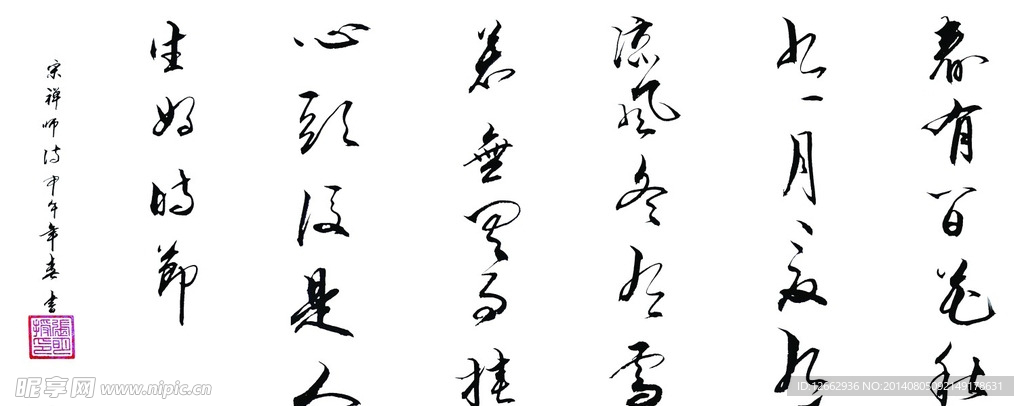 春有百花秋
有月夏有
涼風冬有雪
若無閑事挂
心頭便是人
生好時節
宋禅師诗甲午年春書
昵享网 www.nipic.cn
ID:12662936 NO:20140805092149178631